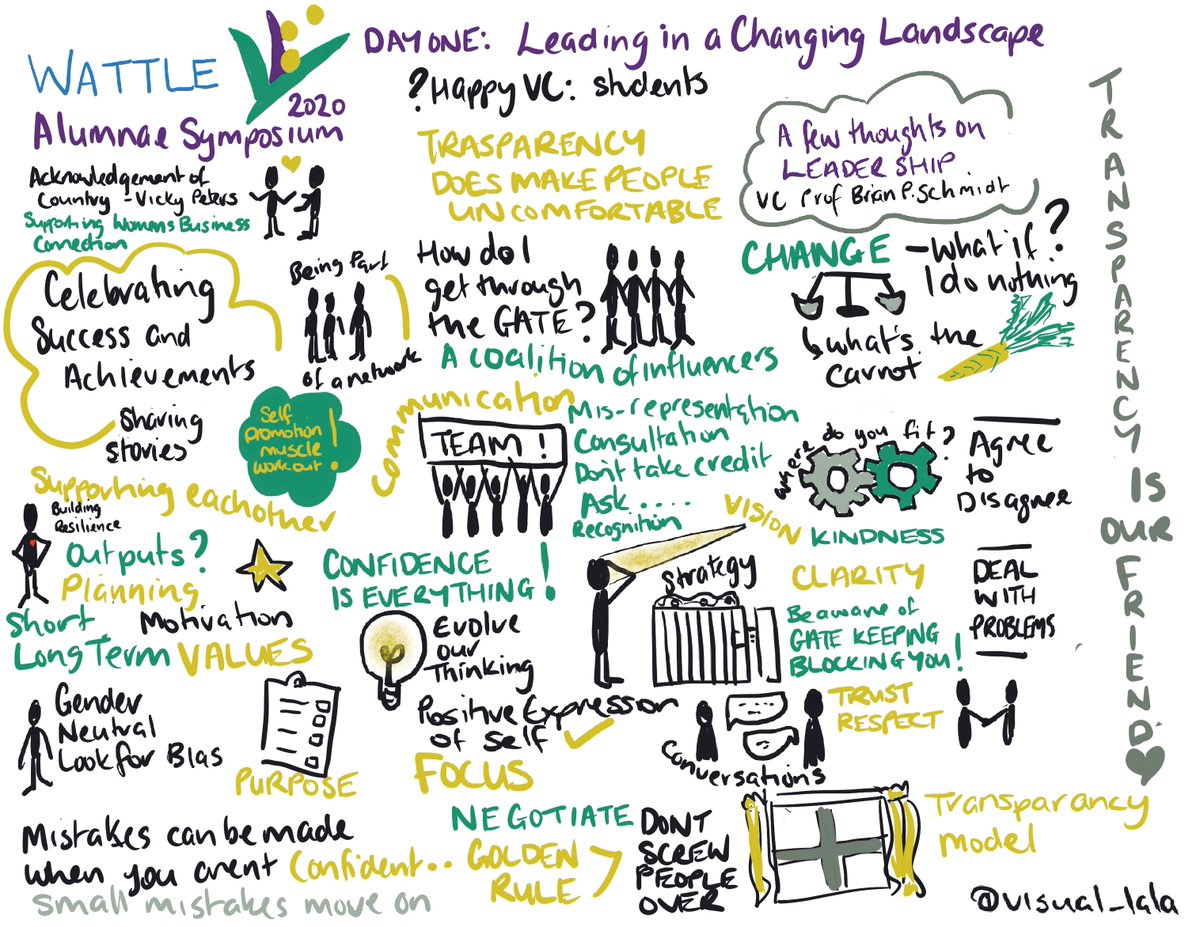 WATTLE
2020
Alumnae Symposium
DAY ONE: Leading in a Changing Landscape
?Happy VC: students
Acknowledgement of
Country - Vicky Peters
Supporting Womens Business
Connection
TRASPARENCY
DOES MAKE PEOPLE
UNCOMFORTABLE
A few thoughts on
LEADERSHIP
VC Prof Brian P. Schmidt
TRANSPARENCY IS OUR FRIEND
Celebrating
Success and
Achievements
Sharing
stories
Being Part
of a network
How do I
get through
the GATE?
A coalition of influencers
CHANGE - What if?
I do nothing
what's the
carrot
Self
promotion
muscle
workout!
Communication
TEAM!
Mis-representation
Consultation
Don't take credit
Ask ....
Recognition
Where do you fit?
Agree
to
Disagree
Supporting eachother
Building
Resilience
Outputs?
Planning
Short
Long Term
Motivation
VALUES
CONFIDENCE
IS EVERYTHING!
VISION
KINDNESS
CLARITY
Strategy
Be aware of
GATE KEEPING
BLOCKING YOU!
DEAL
WITH
PROBLEMS
Evolve
our
Thinking
Gender
Neutral
Look for Bias
PURPOSE
Positive Expression
of Self
FOCUS
Conversations
TRUST
RESPECT
Mistakes can be made
when you arent Confident..
small mistakes move on
NEGOTIATE
GOLDEN
RULE
DONT
SCREW
PEOPLE
OVER
Transparancy
model
@visual_lala